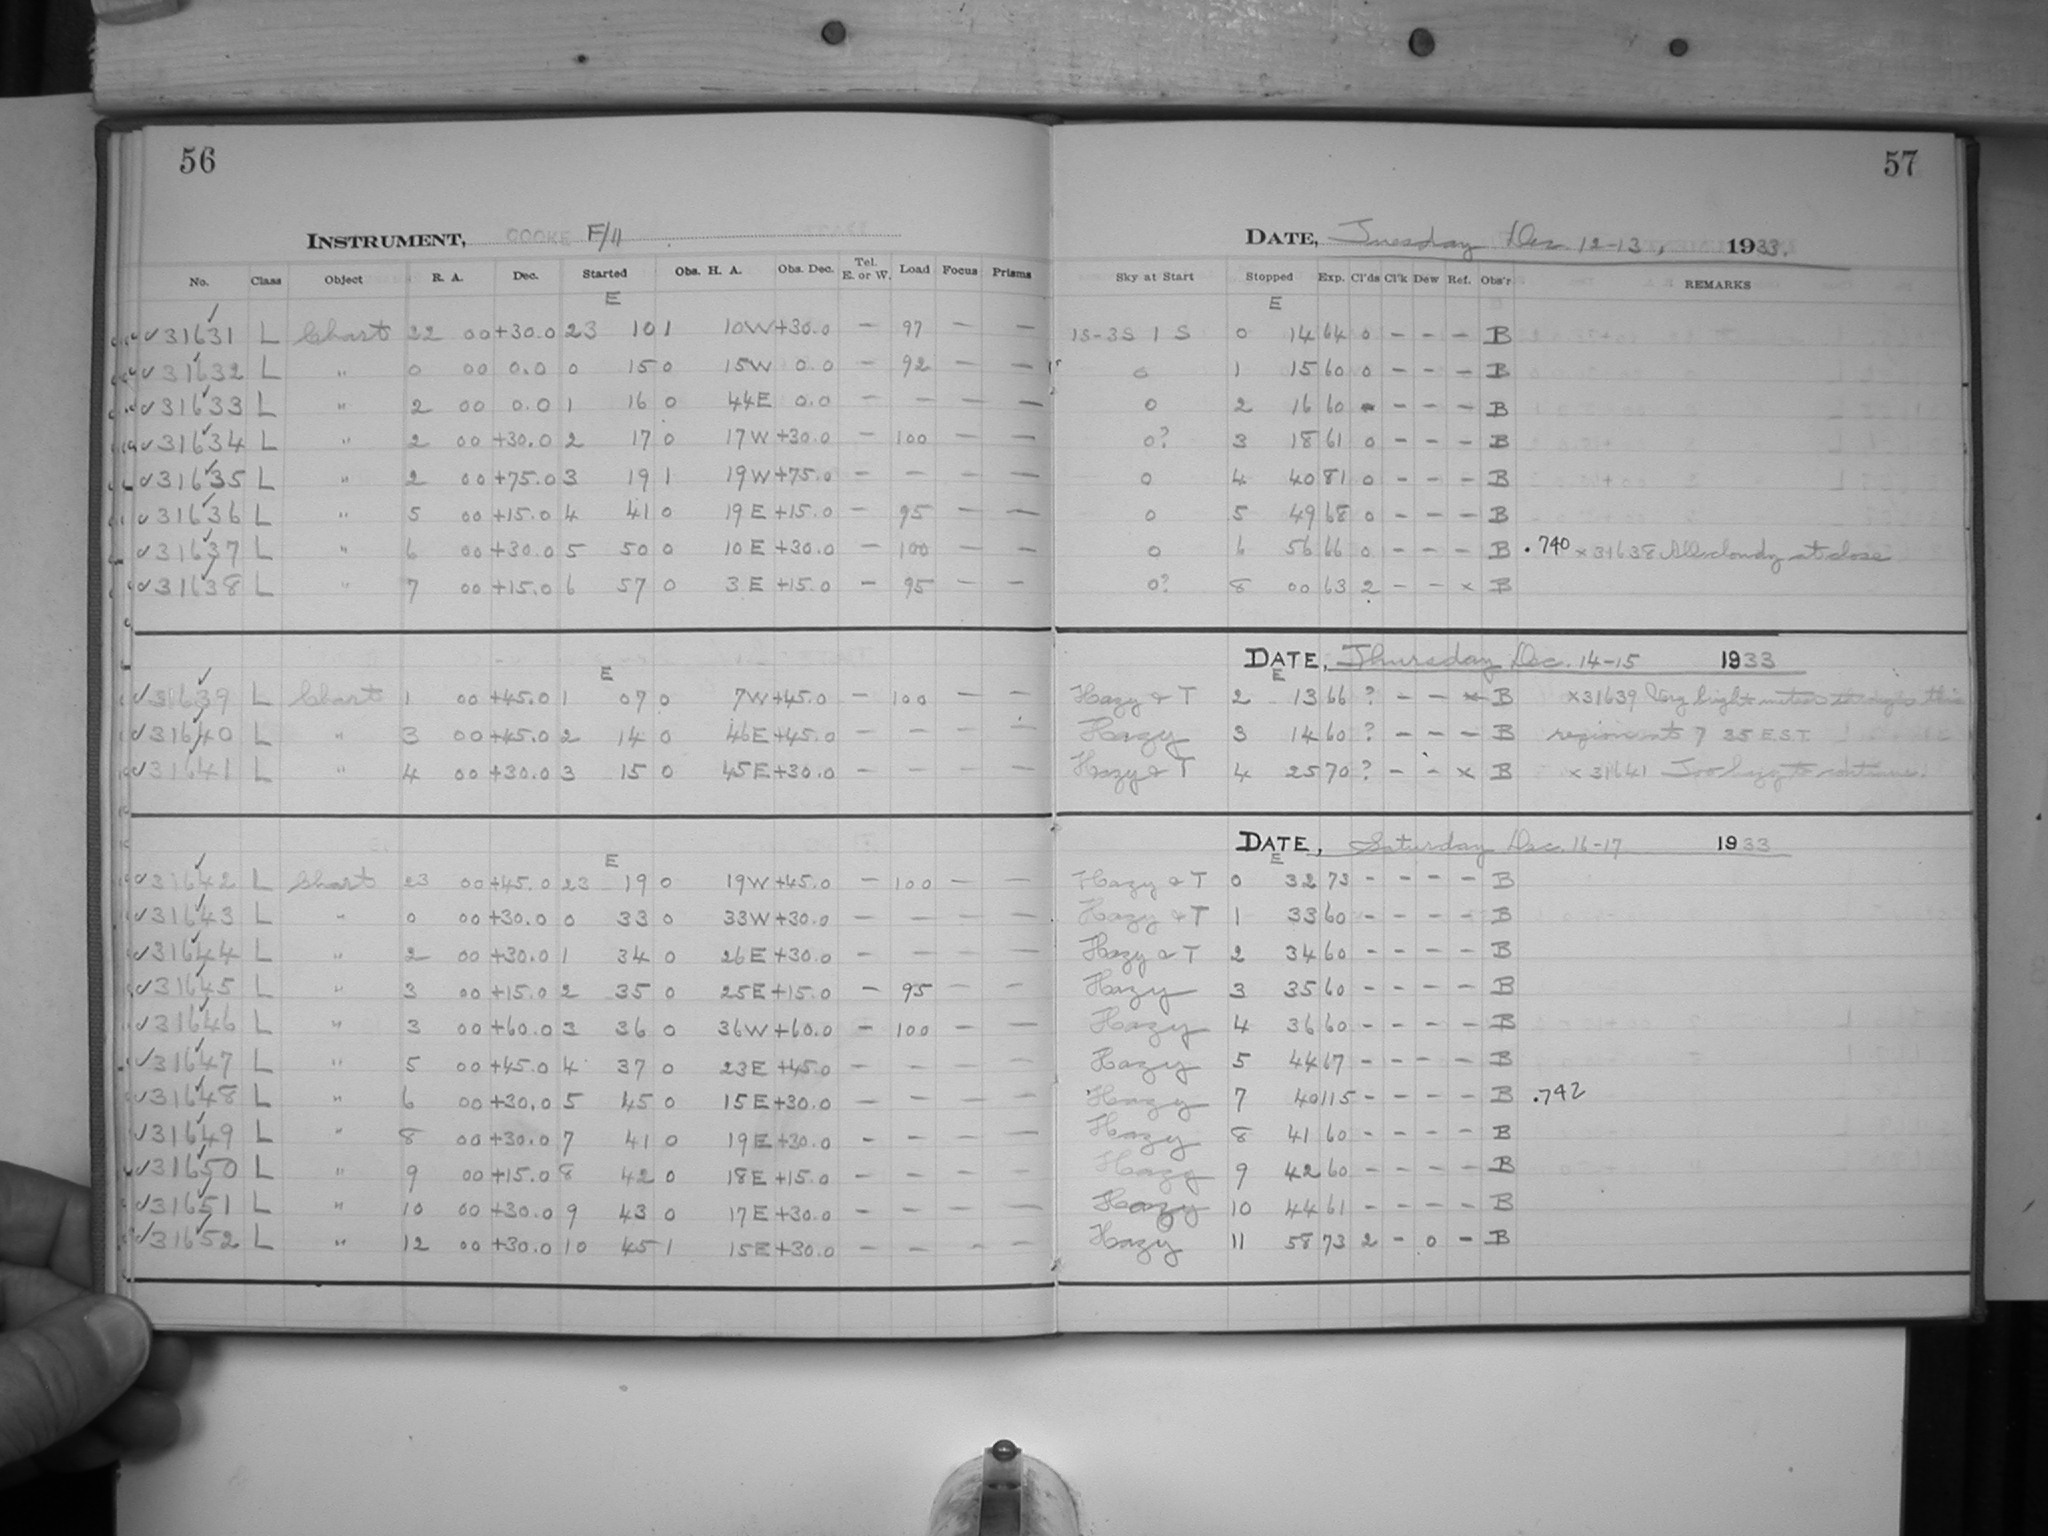 56
57
INSTRUMENT, COOKE F/11
DATE, Tuesday Dec 12-13, 1933.
No. Class Object R. A. Dec. Started Obs. H. A. Obs. Dec. Tel. E. or W. Load Focus Prisms Sky at Start Stopped Exp. Cl'ds Cl'k Dew Ref. Obs'r REMARKS
E E
✓31631 L Chart 22 00 +30.0 23 10 1 10W +30.0 – 97 – – 1S-3S 1 S 0 14 64 0 – – – B
✓31632 L " 0 00 0.0 0 15 0 15W 0.0 – 92 – – 0 1 15 60 0 – – – B
✓31633 L " 2 00 0.0 1 16 0 44E 0.0 – – – – 0 2 16 60 – – – B
✓31634 L " 2 00 +30.0 2 17 0 17W +30.0 – 100 – – 0? 3 18 61 0 – – – B
✓31635 L " 2 00 +75.0 3 19 1 19W +75.0 – – – – 0 4 40 81 0 – – – B
✓31636 L " 5 00 +15.0 4 41 0 19E +15.0 – 95 – – 0 5 49 68 0 – – – B
✓31637 L " 6 00 +30.0 5 50 0 10E +30.0 – 100 – – 0 6 56 66 0 – – – B .740 x31638 All cloudy at close
✓31638 L " 7 00 +15.0 6 57 0 3E +15.0 – 95 – – 0? 8 00 63 2 – – x B
DATE, Thursday Dec. 14-15 1933
E E
✓31639 L Chart 1 00 +45.0 1 07 0 7W +45.0 – 100 – – Hazy & T 2 13 66 ? – – x B x31639 Very bright meteor through this
✓31640 L " 3 00 +45.0 2 14 0 46E +45.0 – – – – Hazy 3 14 60 ? – – – B region at 7 35 E.S.T.
✓31641 L " 4 00 +30.0 3 15 0 45E +30.0 – – – – Hazy & T 4 25 70 ? – – x B x31641 Too hazy to continue.
DATE, Saturday Dec. 16-17 1933
E E
✓31642 L Chart 23 00 +45.0 23 19 0 19W +45.0 – 100 – – Hazy & T 0 32 73 – – – – B
✓31643 L " 0 00 +30.0 0 33 0 33W +30.0 – – – – Hazy & T 1 33 60 – – – – B
✓31644 L " 2 00 +30.0 1 34 0 26E +30.0 – – – – Hazy & T 2 34 60 – – – – B
✓31645 L " 3 00 +15.0 2 35 0 25E +15.0 – 95 – – Hazy 3 35 60 – – – – B
✓31646 L " 3 00 +60.0 3 36 0 36W +60.0 – 100 – – Hazy 4 36 60 – – – – B
✓31647 L " 5 00 +45.0 4 37 0 23E +45.0 – – – – Hazy 5 44 67 – – – – B
✓31648 L " 6 00 +30.0 5 45 0 15E +30.0 – – – – Hazy 7 40 115 – – – – B .742
✓31649 L " 8 00 +30.0 7 41 0 19E +30.0 – – – – Hazy 8 41 60 – – – – B
✓31650 L " 9 00 +15.0 8 42 0 18E +15.0 – – – – Hazy 9 42 60 – – – – B
✓31651 L " 10 00 +30.0 9 43 0 17E +30.0 – – – – Hazy 10 44 61 – – – – B
✓31652 L " 12 00 +30.0 10 45 1 15E +30.0 – – – – Hazy 11 58 73 2 – 0 – B